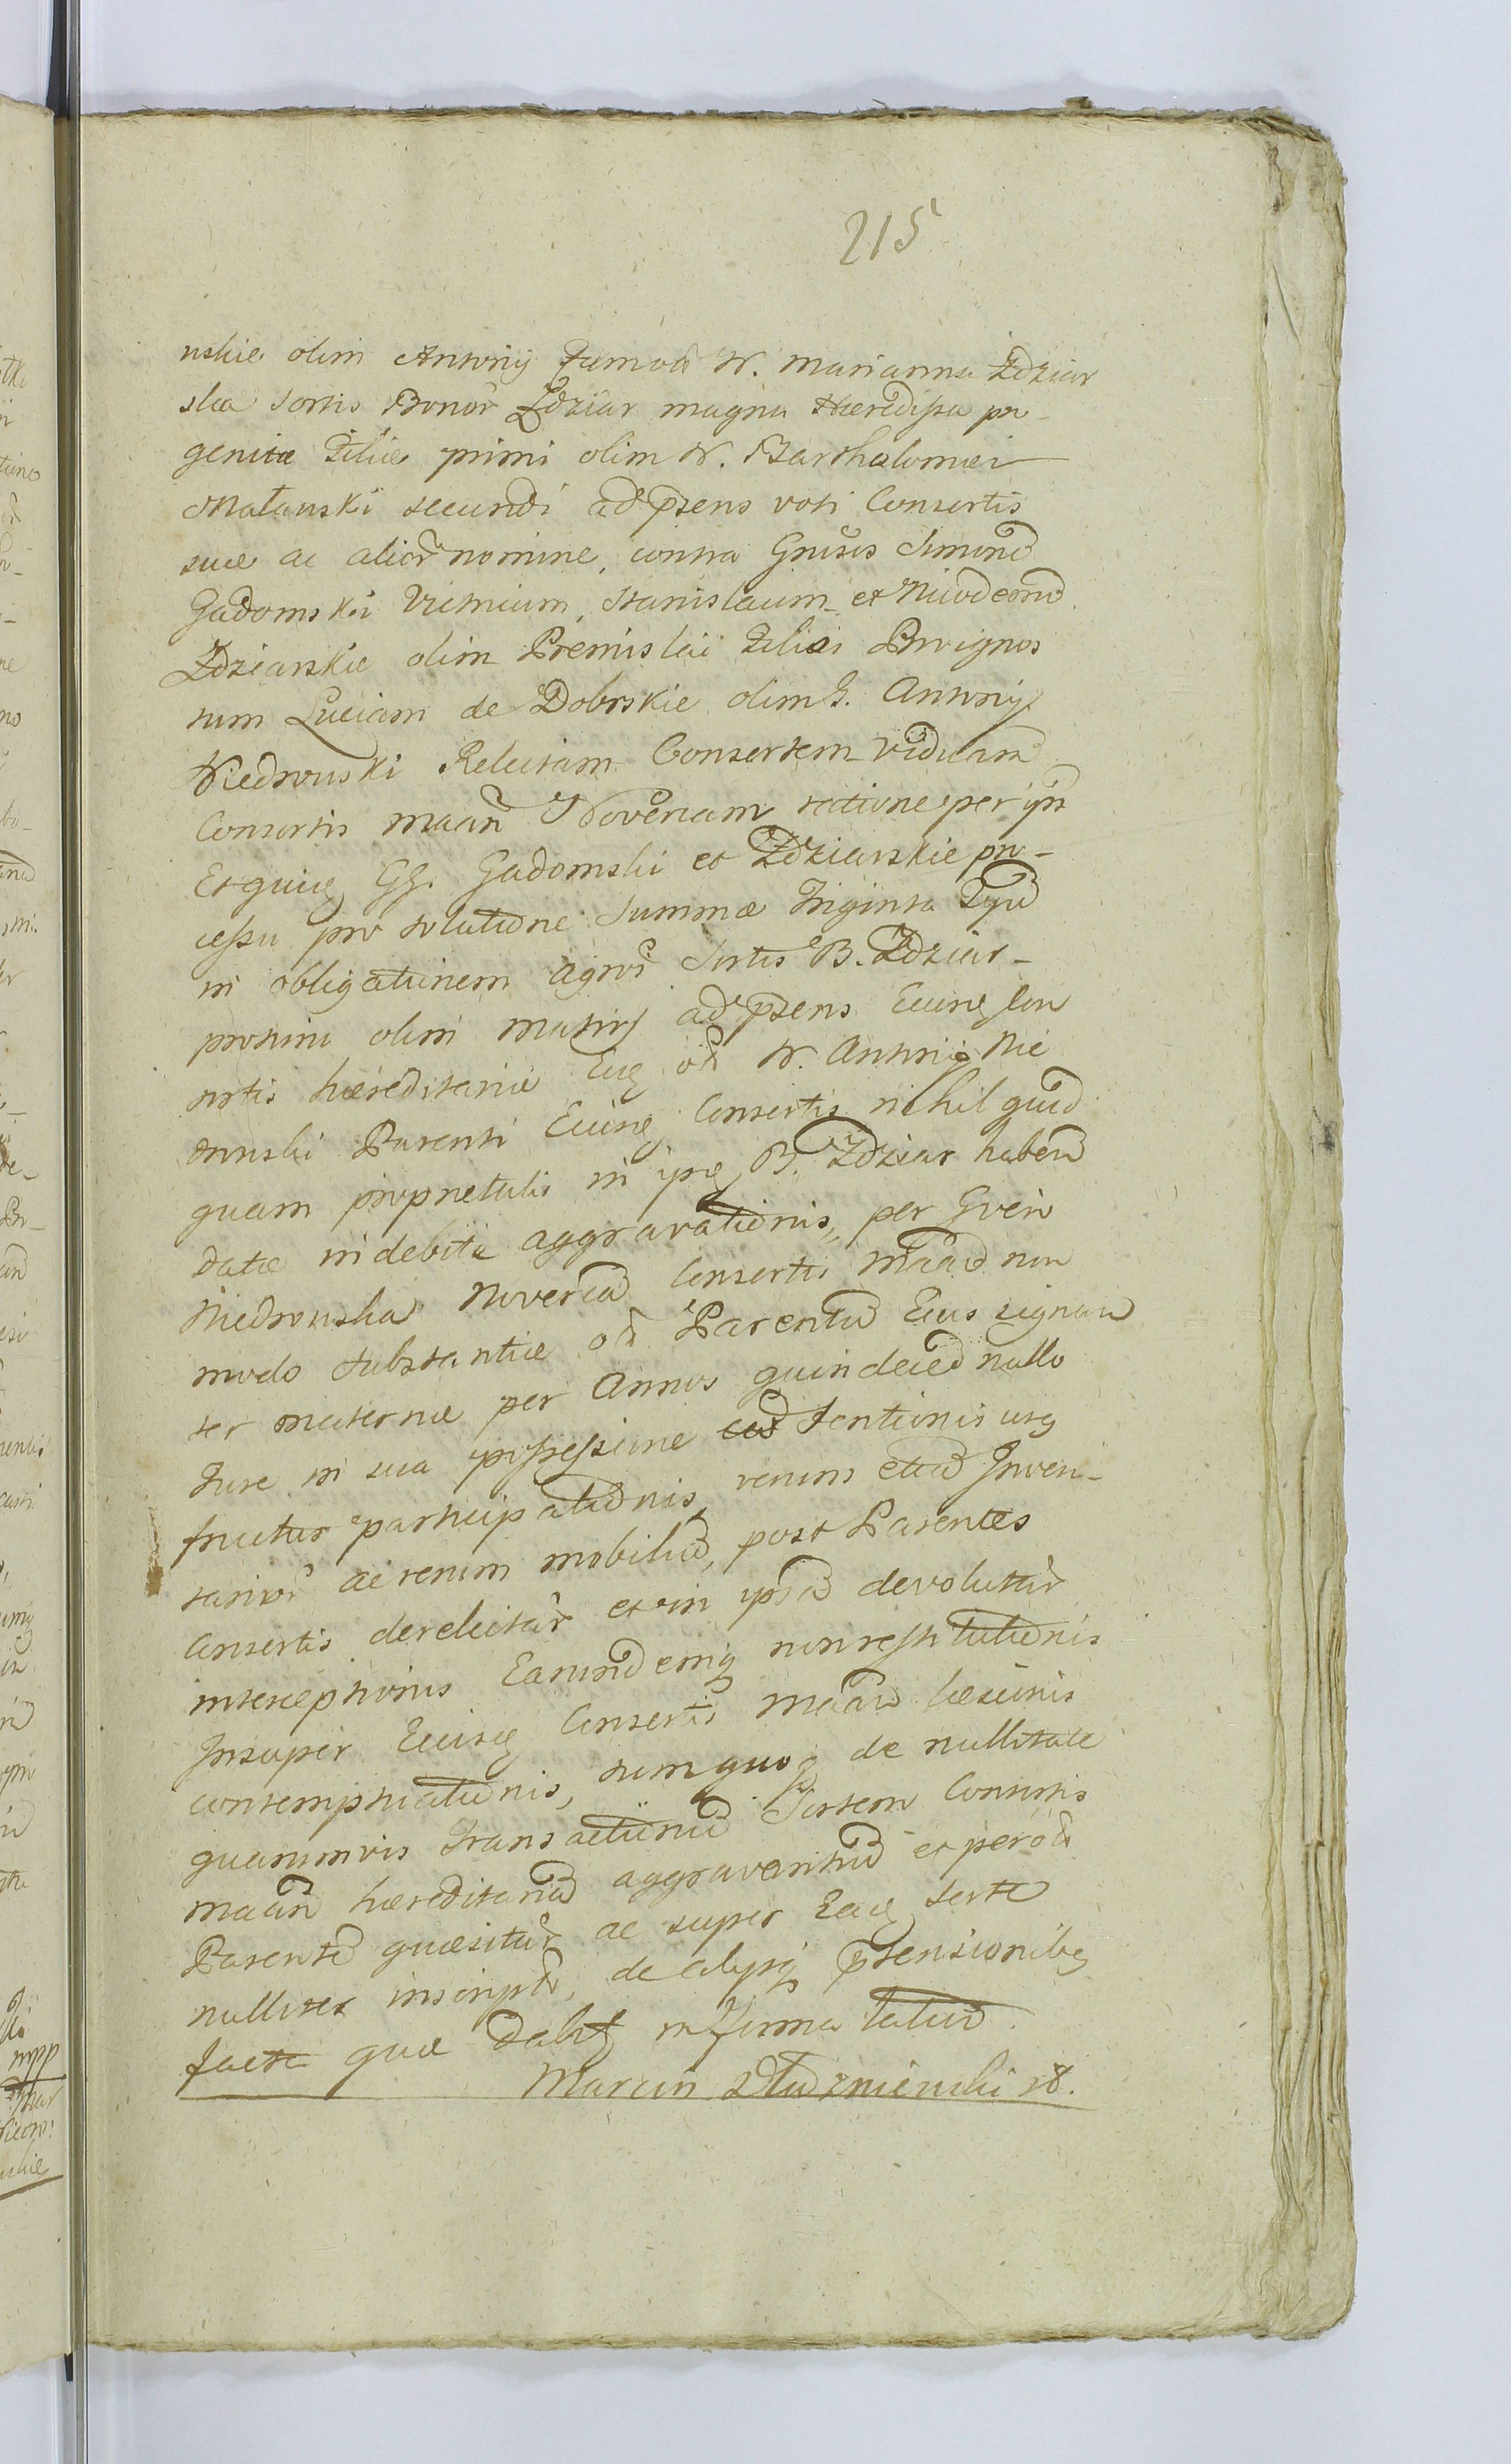 215
nskie olim Antonij Zdziar
ska sortis Bonor Zdziar magna Hæredissa pro
genitæ Filiæ primi olim N. Bartholomæi
Malanski secundi ad psens voti Consortis
suæ ac alior nomine, contra Gnusos Simone
Gadomski Stanislaum et Nicodemu
Zdziarskie olim Premislai Filios Privignos
tum Luciam de Dobrskie olim G. Antonij
Niedrowski Relictam Consortem Viduam
Consortis Maan Novercam ratione per ips
Eosque GG. Gadomski et Zdziarskie pro-
cessu pro solutione Summæ Triginta
in obligationem agror Sortis B. Zdziar
protunc olim Matris ad psens Eiusq Con
sortis hæreditariæ Eiq od N. Antonio Nie
drowski Parenti Eiusq Consortis nihil quid
quam proprietatis in ipse B. Zdziar haben
datæ indebitæ aggravationis, per
Niedrowska Novercã Consortis Maan non
modo substantiæ od Parentu Eius signan
ter maternæ per Annos quindecem nullo
Jure in sua possessione tentionis usq
fructus participationis rerum etia Inven-
tarior ac rerum mobiliu, post Parentes
Consortis derelictar et in ipsa devolutar
interceptionis Earundemq non restitutionis
Insuper Eiusq Consortis Maan læsionis
contemptuationis, tum quoq de nullitate
quarumvis Transactionu Sortem Consortis
Maan hæreditariã aggravantiu et per od
Parente quæsitar ac super Eaq Sorte
nulliter inscripta, de alijsq ptensionibq
facta quæ dabit in Termino latiu
Marcin